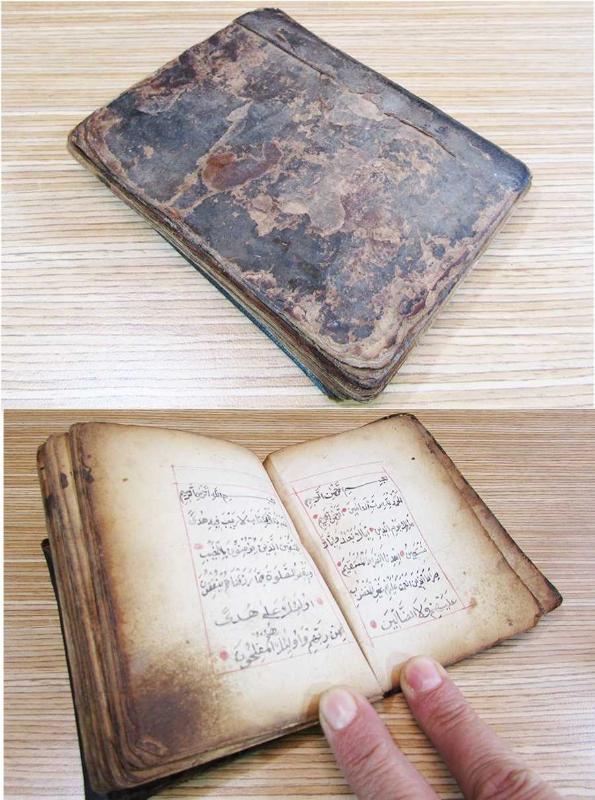 بسم الله الرحمن الرحيم
الحمد لله رب العالمين الرحمن الرحيم
مالك يوم الدين اياك نعبد واياك
نستعين اهدنا الصراط المستقيم
صراط الذين انعمت عليهم غير المغضوب
عليهم ولا الضالين
بسم الله الرحمن الرحيم
الكتاب لا ريب فيه هدى
للمتقين الذين يؤمنون بالغيب
ويقيمون الصلوة ومما رزقناهم ينفقون
اولئك على هدى
من ربهم واولئك هم المفلحون